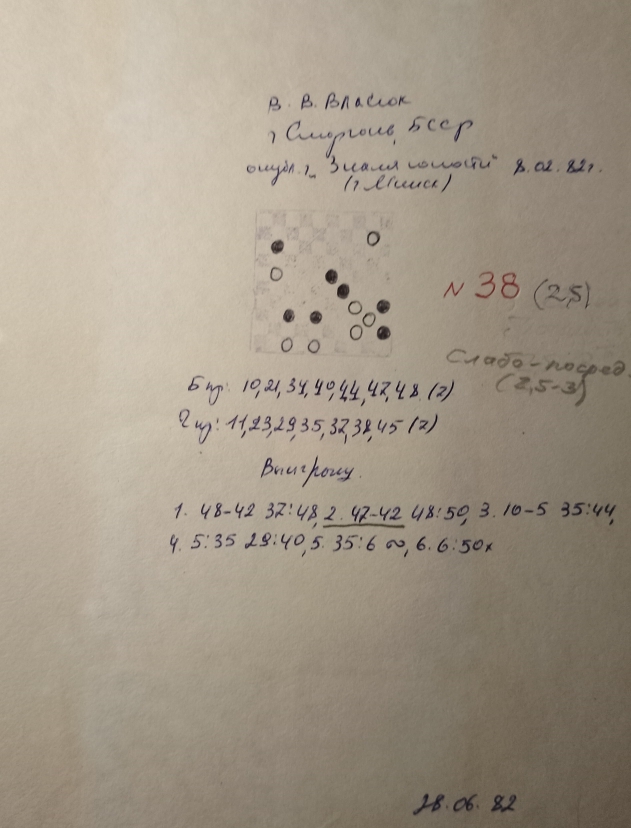 В. В. Власюк
г. Сморгонь, БССР
опубл. г. „Знамя юности" 8.02.82г.
(г. Минск)
N 38 (25)
Слабо-посред.
(2,5-3)
Б пр: 10,21,34,40,44,47,48 (7)
Ч пр: 11,23,29,35,37,38,45 (7)
Выигрыш.
1. 48-42 37:48, 2. 47-42 48:50, 3. 10-5 35:44,
4. 5:35 29:40, 5. 35:6 ∞, 6. 6:50x
28.06.82